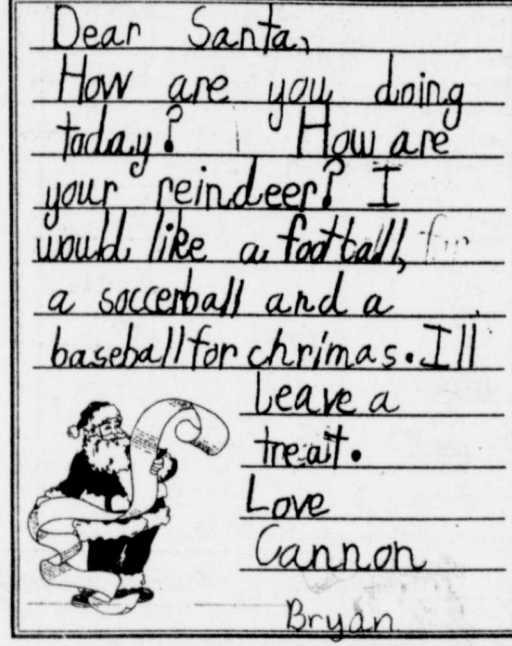 Dear Santa,
How are you doing
today? How are
your reindeer? I
would like a football,
a soccerball and a
baseball for chrimas. I'll
Leave a
treat.
Love
Cannon
Bryan